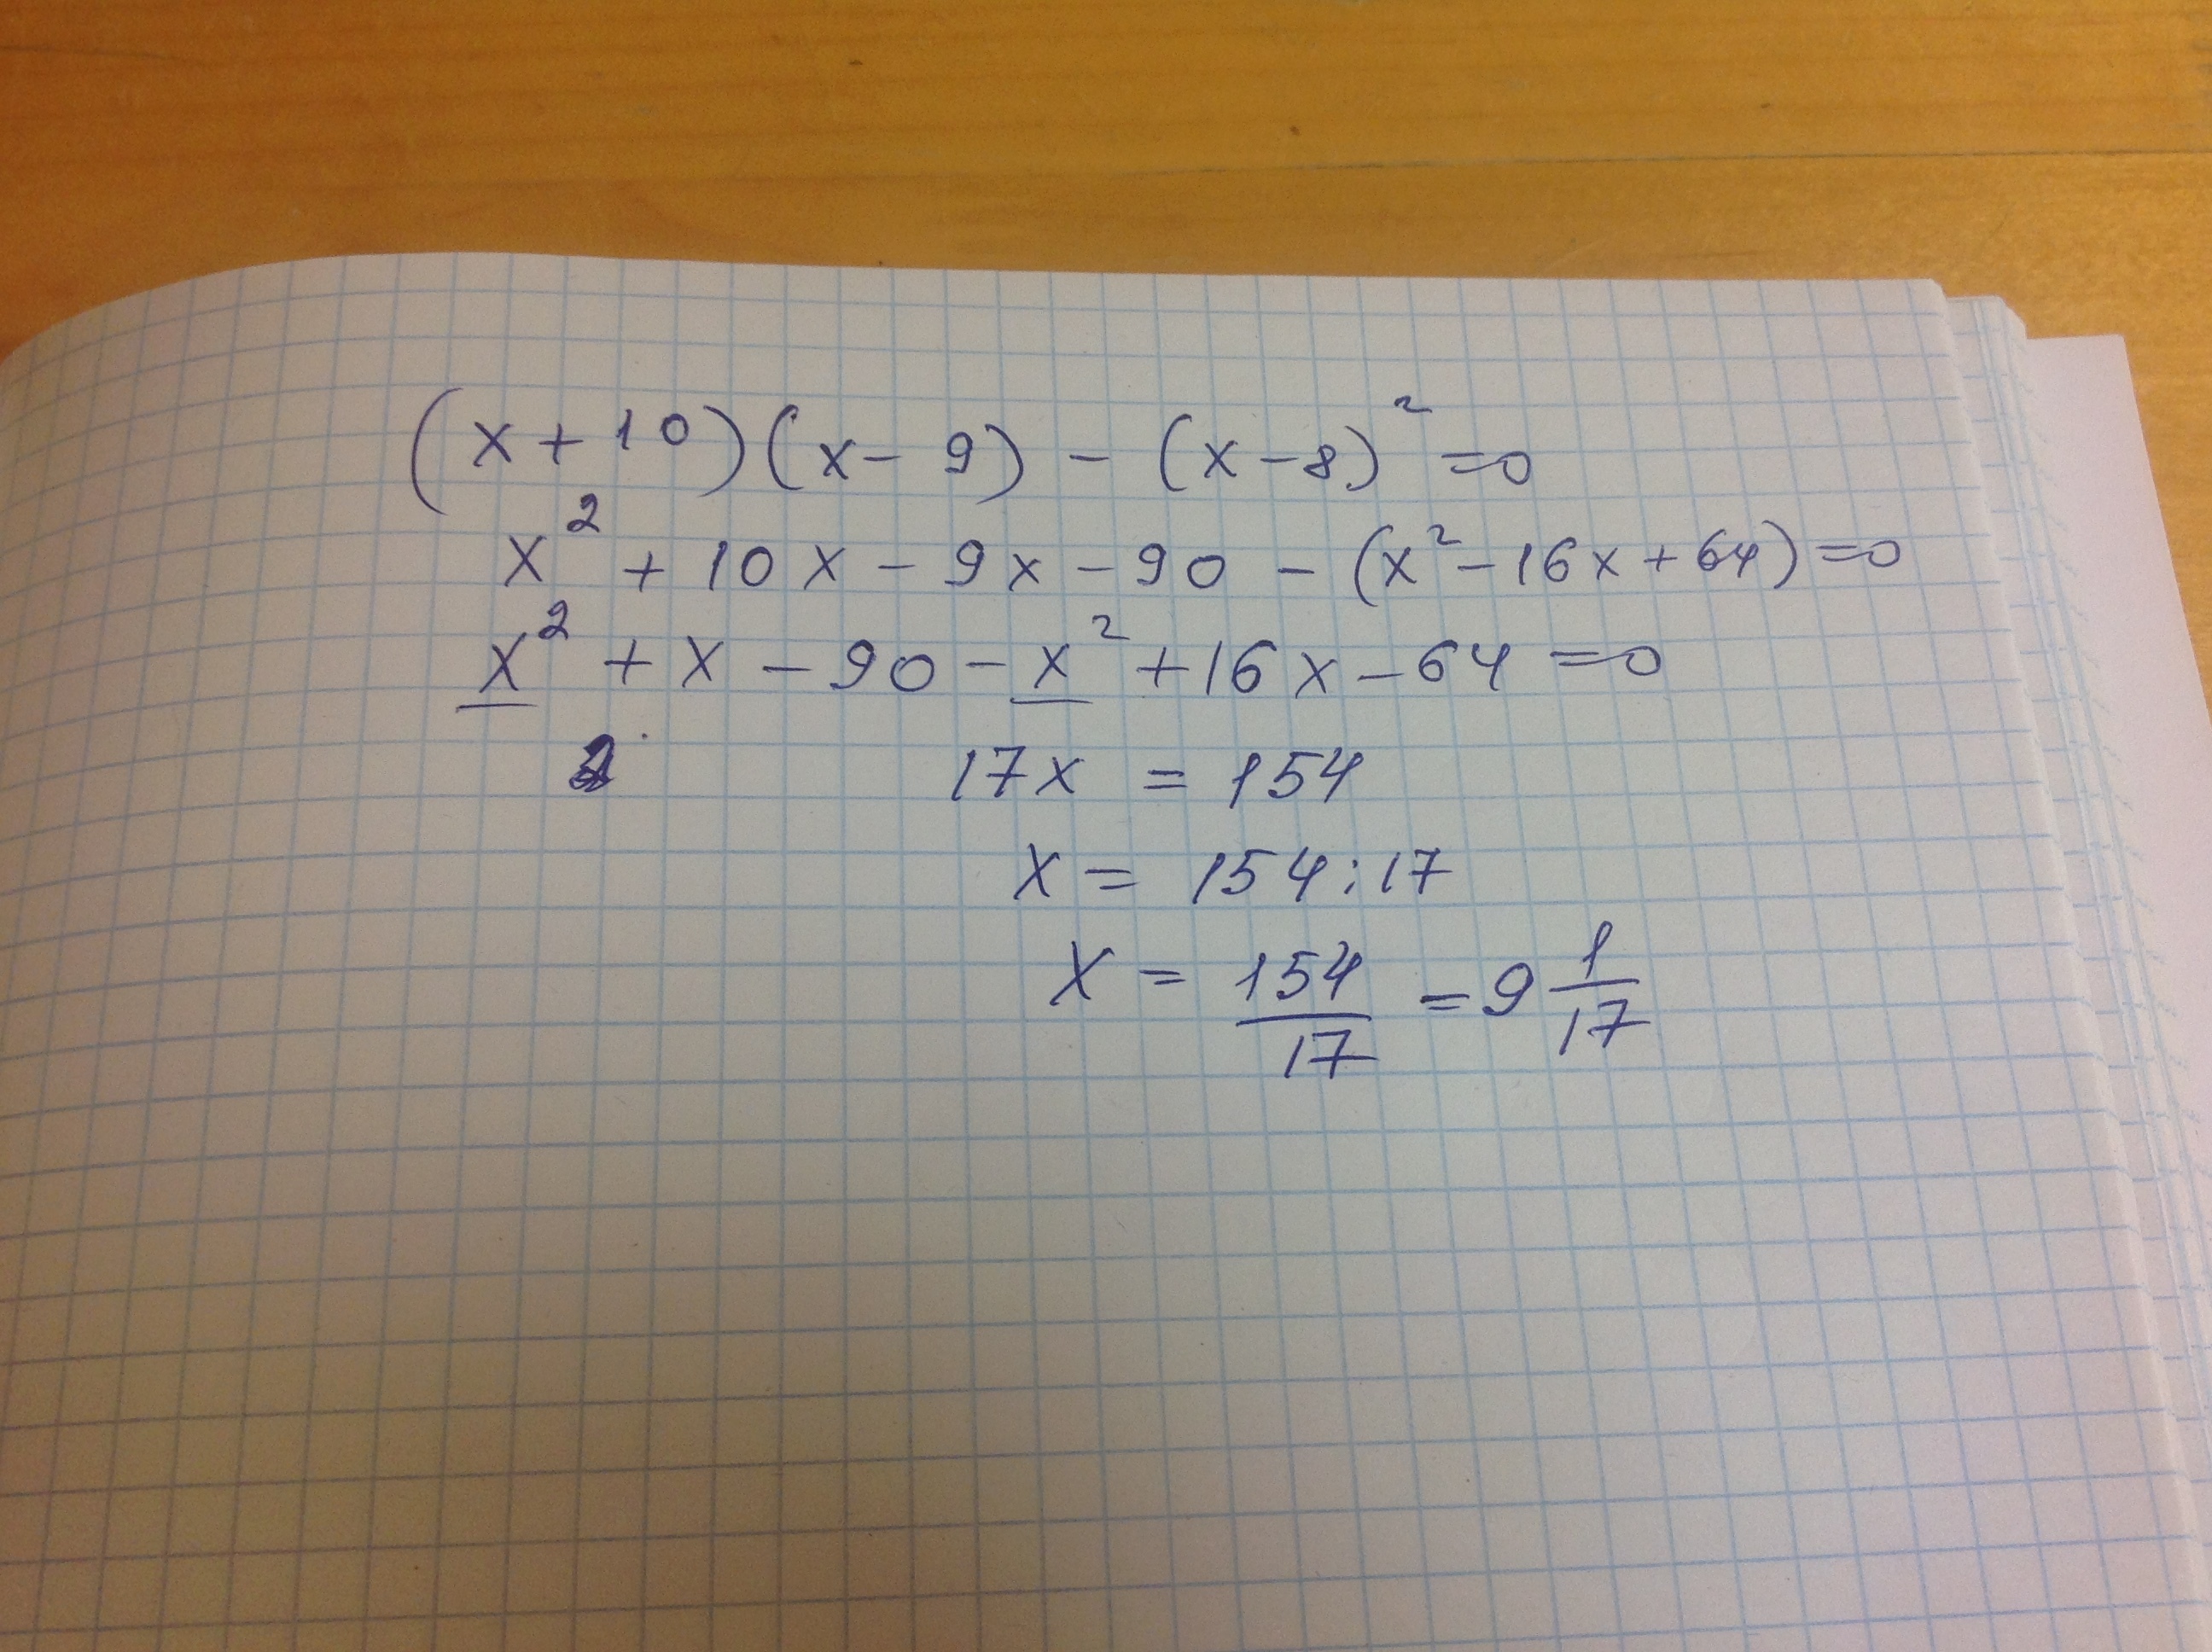 (x + 10)(x - 9) - (x - 8)² = 0
x² + 10x - 9x - 90 - (x² - 16x + 64) = 0
x² + x - 90 - x² + 16x - 64 = 0
17x = 154
x = 154 : 17
x = 154/17 = 9 1/17